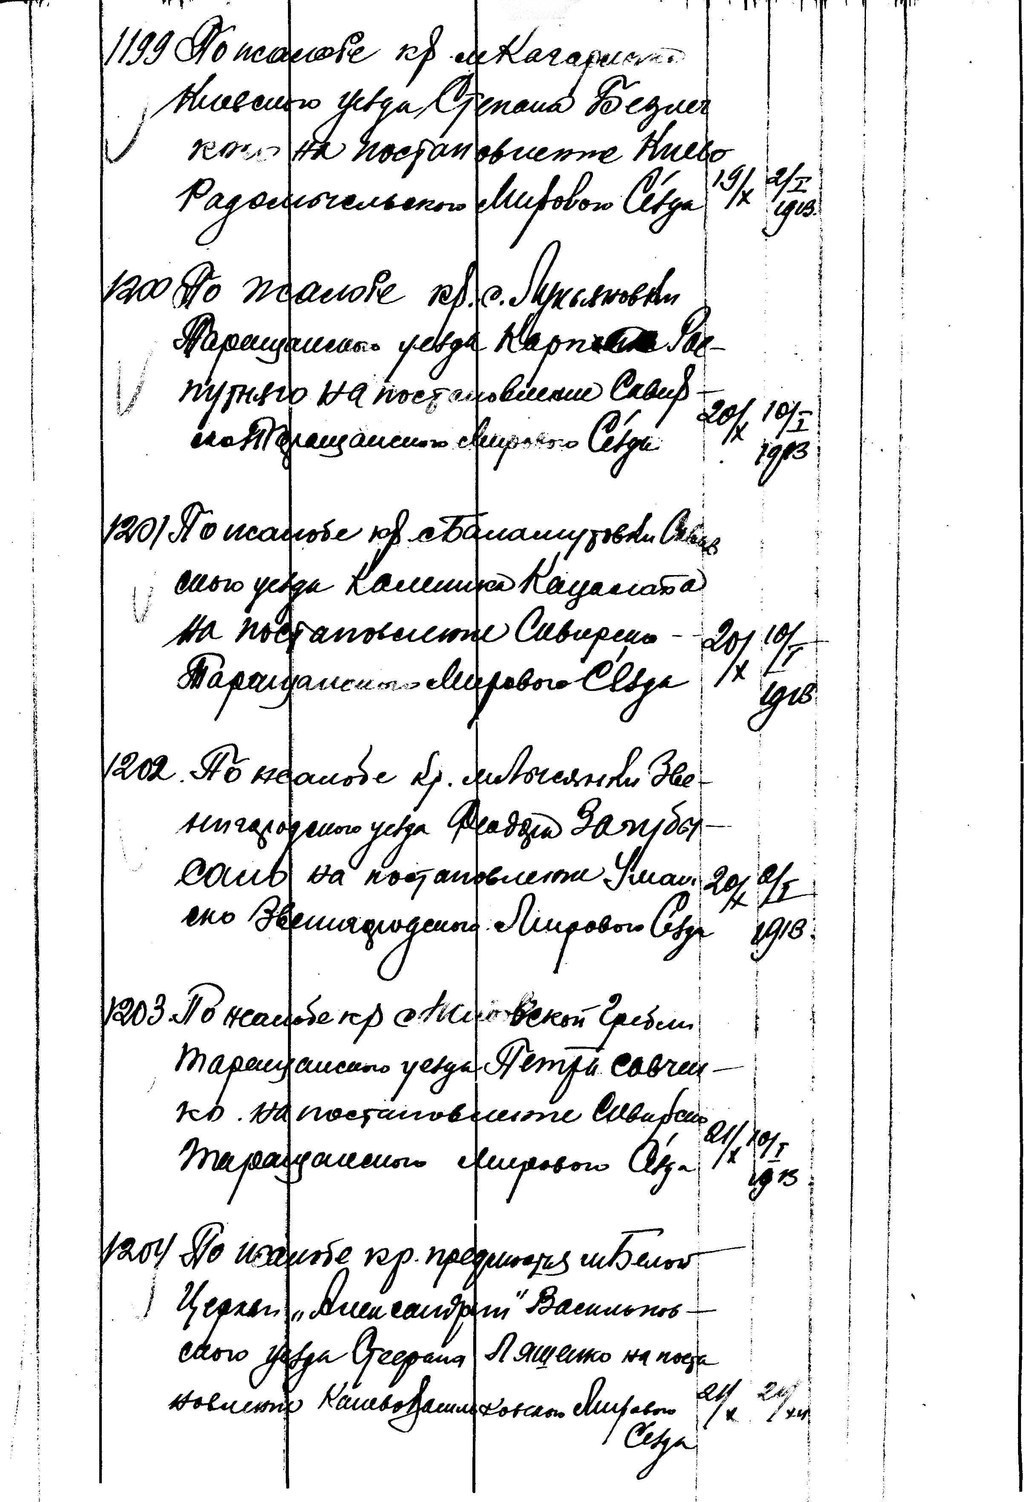 1199 По жалобе кр. м. Кагарлыка
Киевского уезда Степана Безлеч
кого на постановление Киево
Радомысльского Мирового Съезда 19/X 2/I
1913
1200 По жалобе кр. с. Лукьяновки
Таращанского уезда Карпа Рас-
путнего на постановление Сквир-
ско Таращанского Мирового Съезда 20/X 10/I
1913
1201 По жалобе кр. с. Баламутовки Сквир
ского уезда Калиника
на постановление Сквирско- 20/X 10/I
Таращанского Мирового Съезда 1913
1202. По жалобе кр. м. Лысянки Зве-
нигородского уезда
на постановление Уман 20/X 2/I
ско Звенигородского Мирового Съезда 1913.
1203 По жалобе кр. с. Гребли
Таращанского уезда Петра Савчен-
ко. на постановление Сквирско
Таращанского Мирового Съезда 21/X 10/I
1913
1204 По жалобе кр. предместья м. Белой
Церкви „Александрии" Васильков-
ского уезда Стефана Лященко на поста
новление Васильковского Мирового 21/X
Съезда